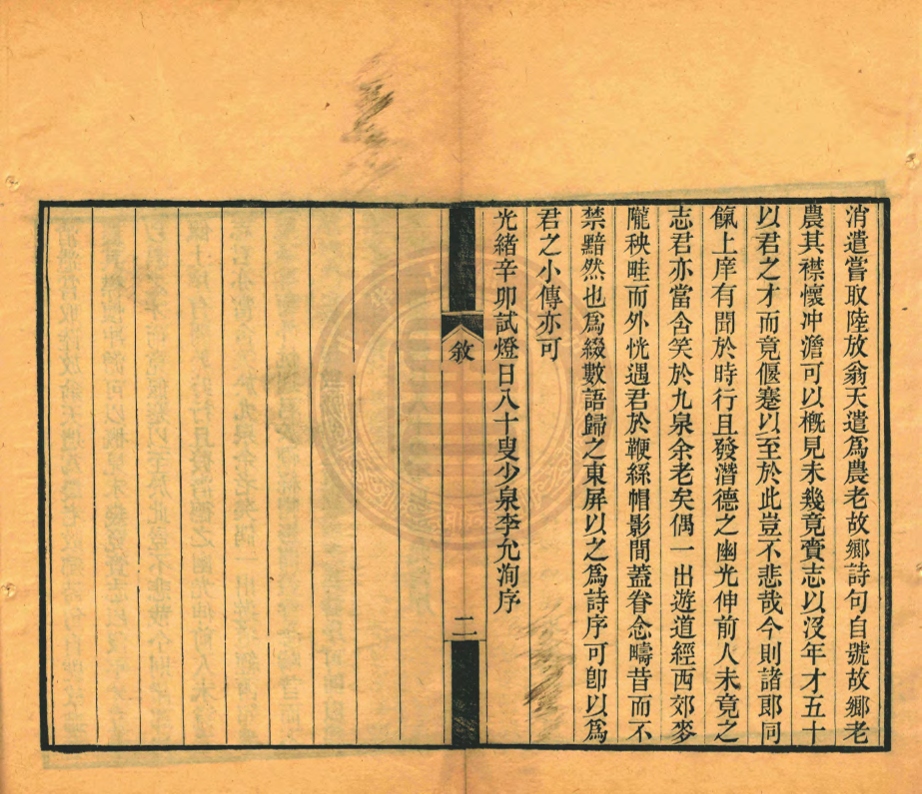 消遣嘗取陸放翁天遣爲農老故鄉詩句自號故鄉老
農其襟懷冲澹可以槪見未幾竟賫志以沒年才五十
以君之才而竟偃蹇以至於此豈不悲哉今則諸郎同
餼上庠有聞於時行且發潛德之幽光伸前人未竟之
志君亦當含笑於九泉余老矣偶一出遊道經西郊麥
隴秧畦而外恍遇君於鞭絲帽影間蓋眷念疇昔而不
禁黯然也爲綴數語歸之東屏以之爲詩序可卽以爲
君之小傳亦可
光緖辛卯試燈日八十叟少泉李允洵序
敘
二